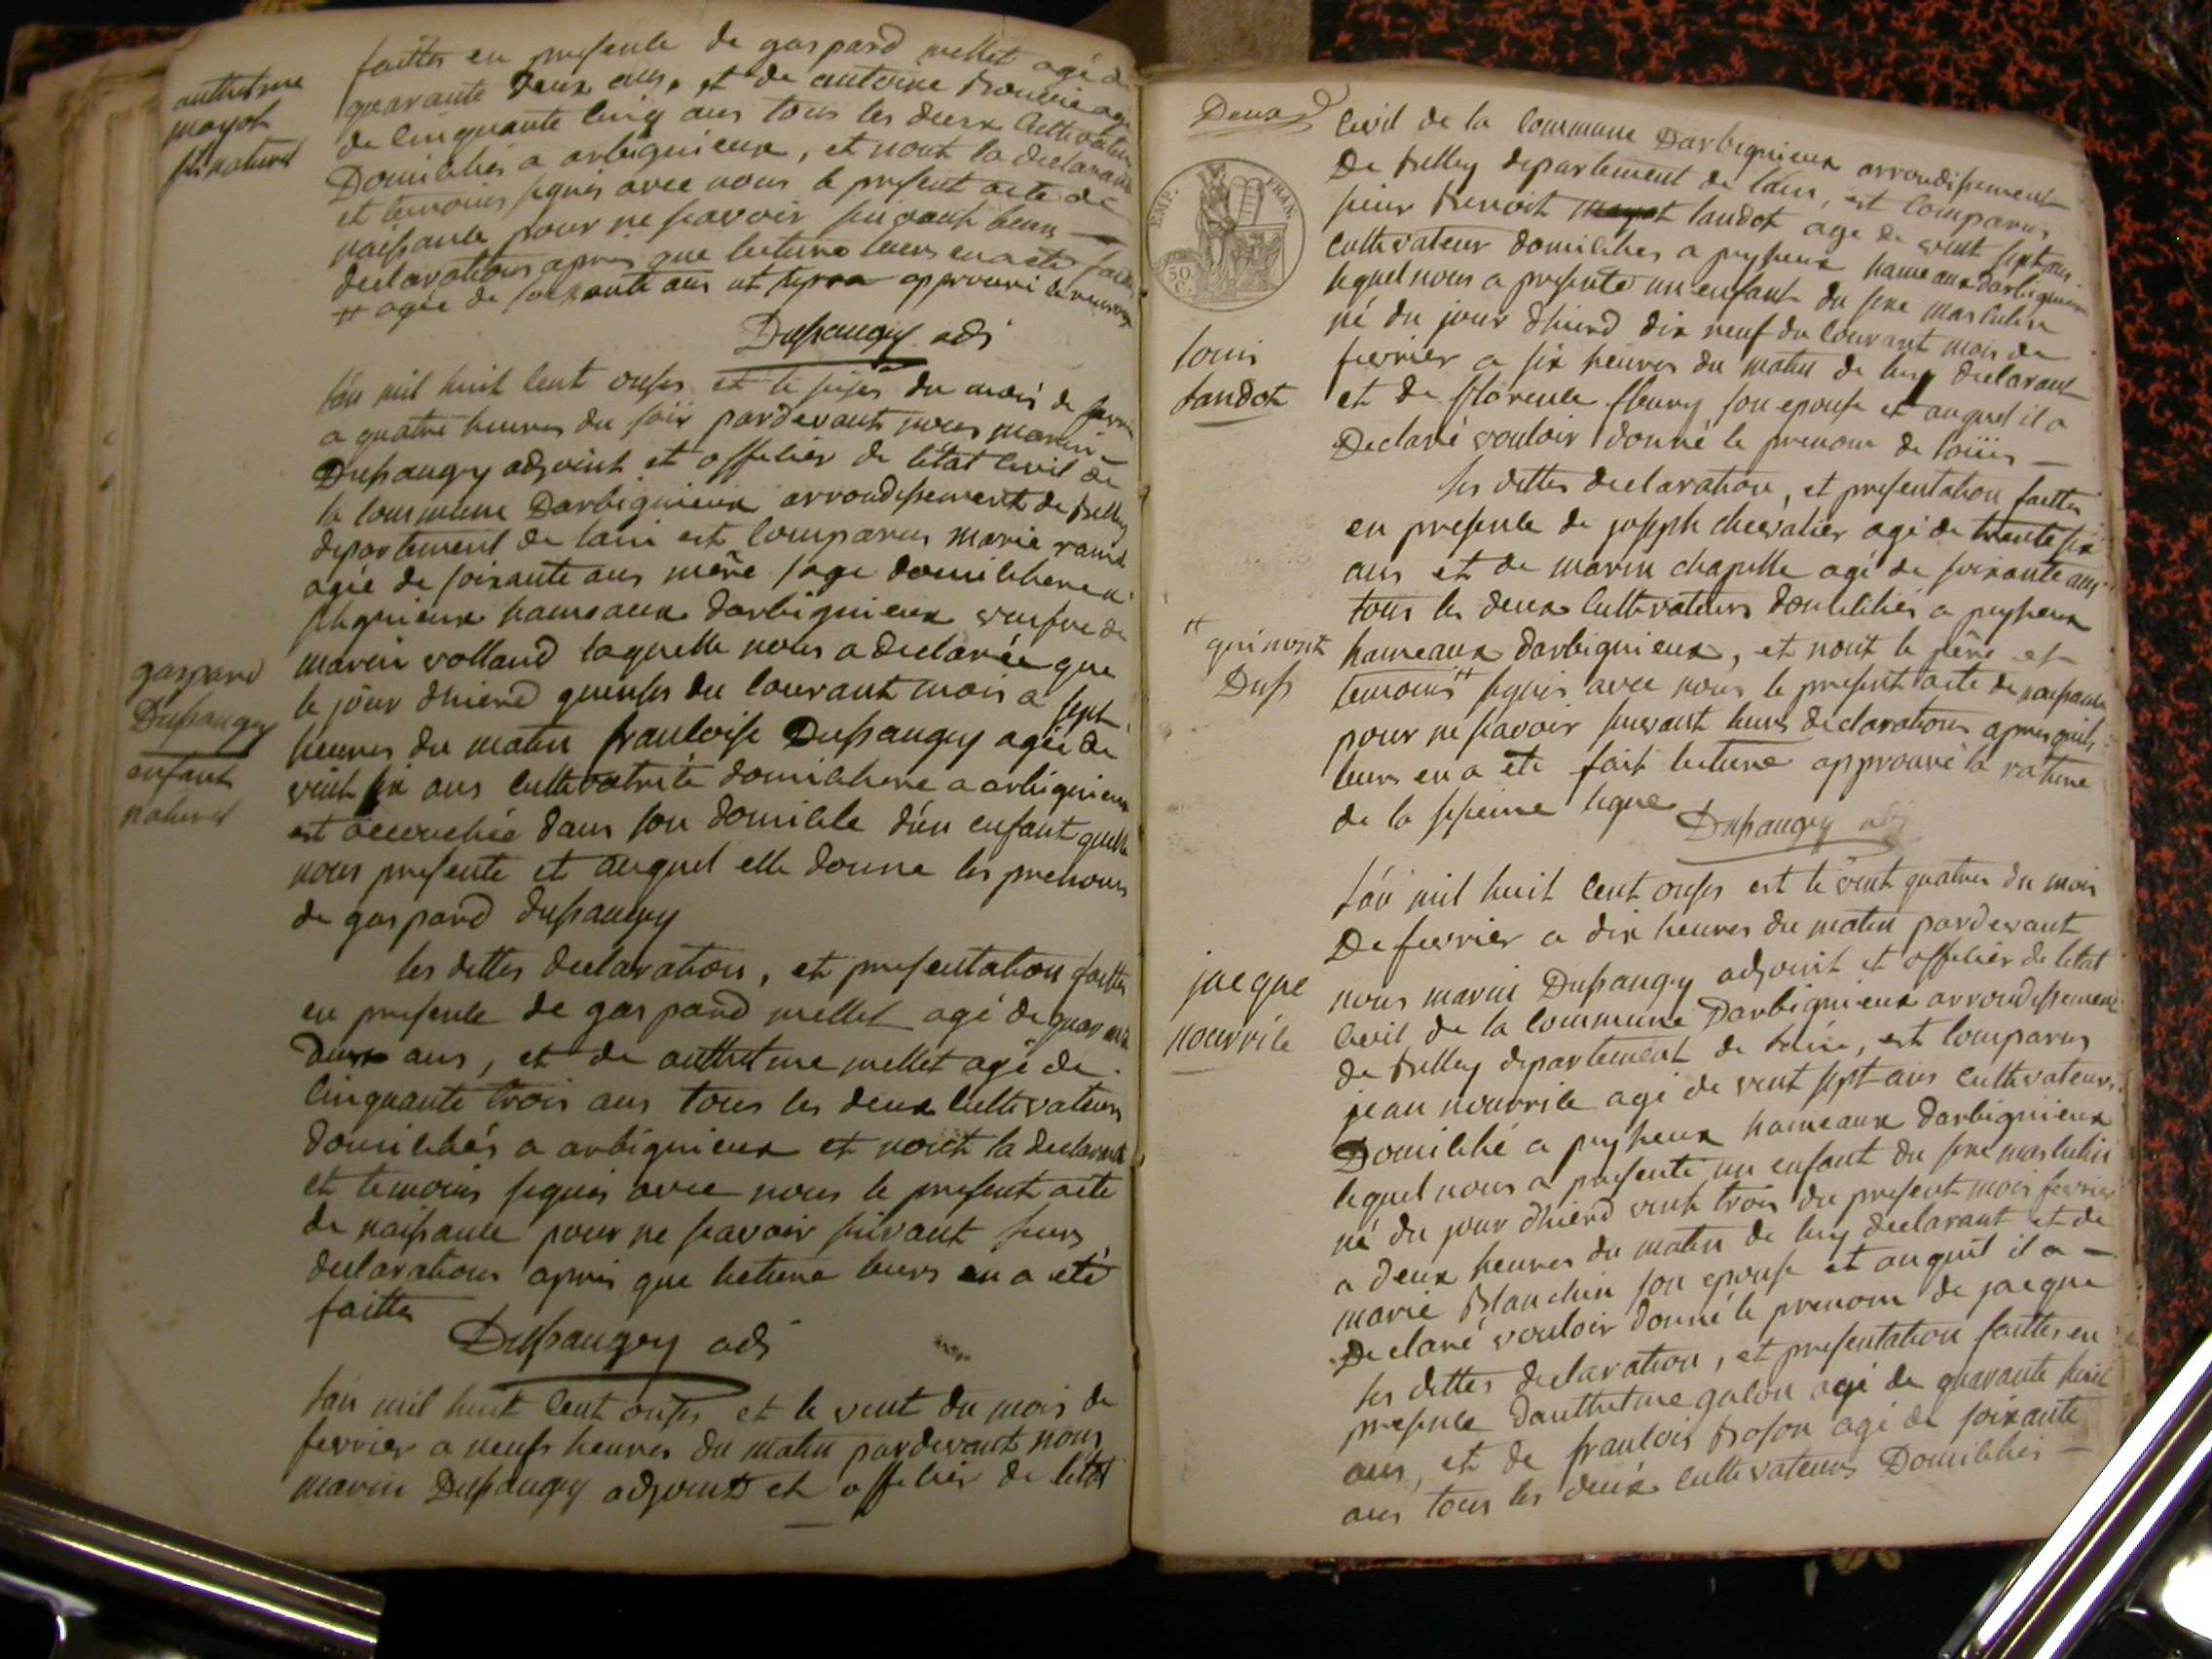 anthelme
mayot
fils naturel
faittes en presence de gaspard mellet agé de
quarante deux ans, et de antoine agé
de cinquante cinq ans tous les deux cultivateurs
Domiciliés a arbignieux, et n'ont la declarante
et temoins signés avec nous le present acte de
naissance pour ne scavoir suivant leurs
declarations apres que lecture leurs en a eté faitte
# agée de soixante ans approuvé le renvoy
Dupaugey adj
L'an mil huit cent onses et le seises du mois de
a quatre heures du soir pardevant nous marin
Dupaugey adjoint et officier de l'état civil de
la commune Darbignieux arrondissement de Belley
departement de lain est comparus marie
agée de soixante ans mère sage domiciliere a
hameaux darbignieux veufve de
marin volland laquelle nous a declarée que
le jour dhierd quinses du courant mois a sept
heures du matin francoise Dupaugey agée de
vint six ans cultivatrice domiciliere a arbignieux
est accouchée dans son domicile d'un enfant quelle
nous presente et auquel elle donne les prenoms
de gaspard dupaugey
gaspard
Dupaugey
enfant
naturel
les dittes declaration, et presentation faittes
en presence de gaspard mellet agé de quarante
deux ans, et de anthelme mellet agé de
cinquante trois ans tous les deux cultivateurs
domiciliés a arbignieux et n'ont la declarante
et temoins signés avec nous le present acte
de naissance pour ne scavoir suivant leurs
declarations apres que lecture leurs en a eté
faitte
Dupaugey adj
L'an mil huit cent onses et le vint du mois de
fevrier a neufs heures du matin pardevant nous
marin Dupaugey adjoint et officier de l'état
Deux
EMP. FRAN.
50
C.
civil de la commune Darbignieux arrondissement
De belley departement de lain, est comparus
sieur Benoit mayot landot agé de vint sept ans
cultivateur domiciliés a peyzieux hameaux darbignieux
lequel nous a presenté un enfant du sexe masculin
né du jour dhierd dix neuf du courant mois de
fevrier a six heures du matin de luy declarant
et de florence fleury son epouse et auquel il a
Declaré vouloir donné le prenom de loüis
Louis
Landot
les dittes declaration, et presentation faittes
en presence de joseph chevalier agé de trente six
ans et de marin chapelle agé de soixante ans
tous les deux cultivateurs domiciliés a peyzieux
hameaux darbignieux, et n'ont le père et
temoins # signés avec nous le present acte de naissance
pour ne scavoir suivant leurs declarations apres quils
leurs en a eté fait lecture approuvé la rature
de la ligne
# qui n'ont
Dup
Dupaugey adj
L'an mil huit cent onses est le vint quatres du mois
De fevrier a dix heures du matin pardevant
nous marin Dupaugey adjoint et officier de l'etat
civil de la commune Darbignieux arrondissement
de Belley departement de lain, est comparus
jean nourrice agé de vint sept ans cultivateurs
Domicilié a peyzieux hameaux darbignieux
lequel nous a presenté un enfant du sexe masculin
né du jour dhierd vint trois du present mois fevrier
a deux heures du matin de luy declarant et de
marie Blanchin son epouse et auquel il a
Declaré vouloir donné le prenom de jacque
jacque
nourrice
les dittes declaration, et presentation faittes en
presence danthelme galon agé de quarante huit
ans, et de francois agé de soixante
ans tous les deux cultivateurs Domiciliés